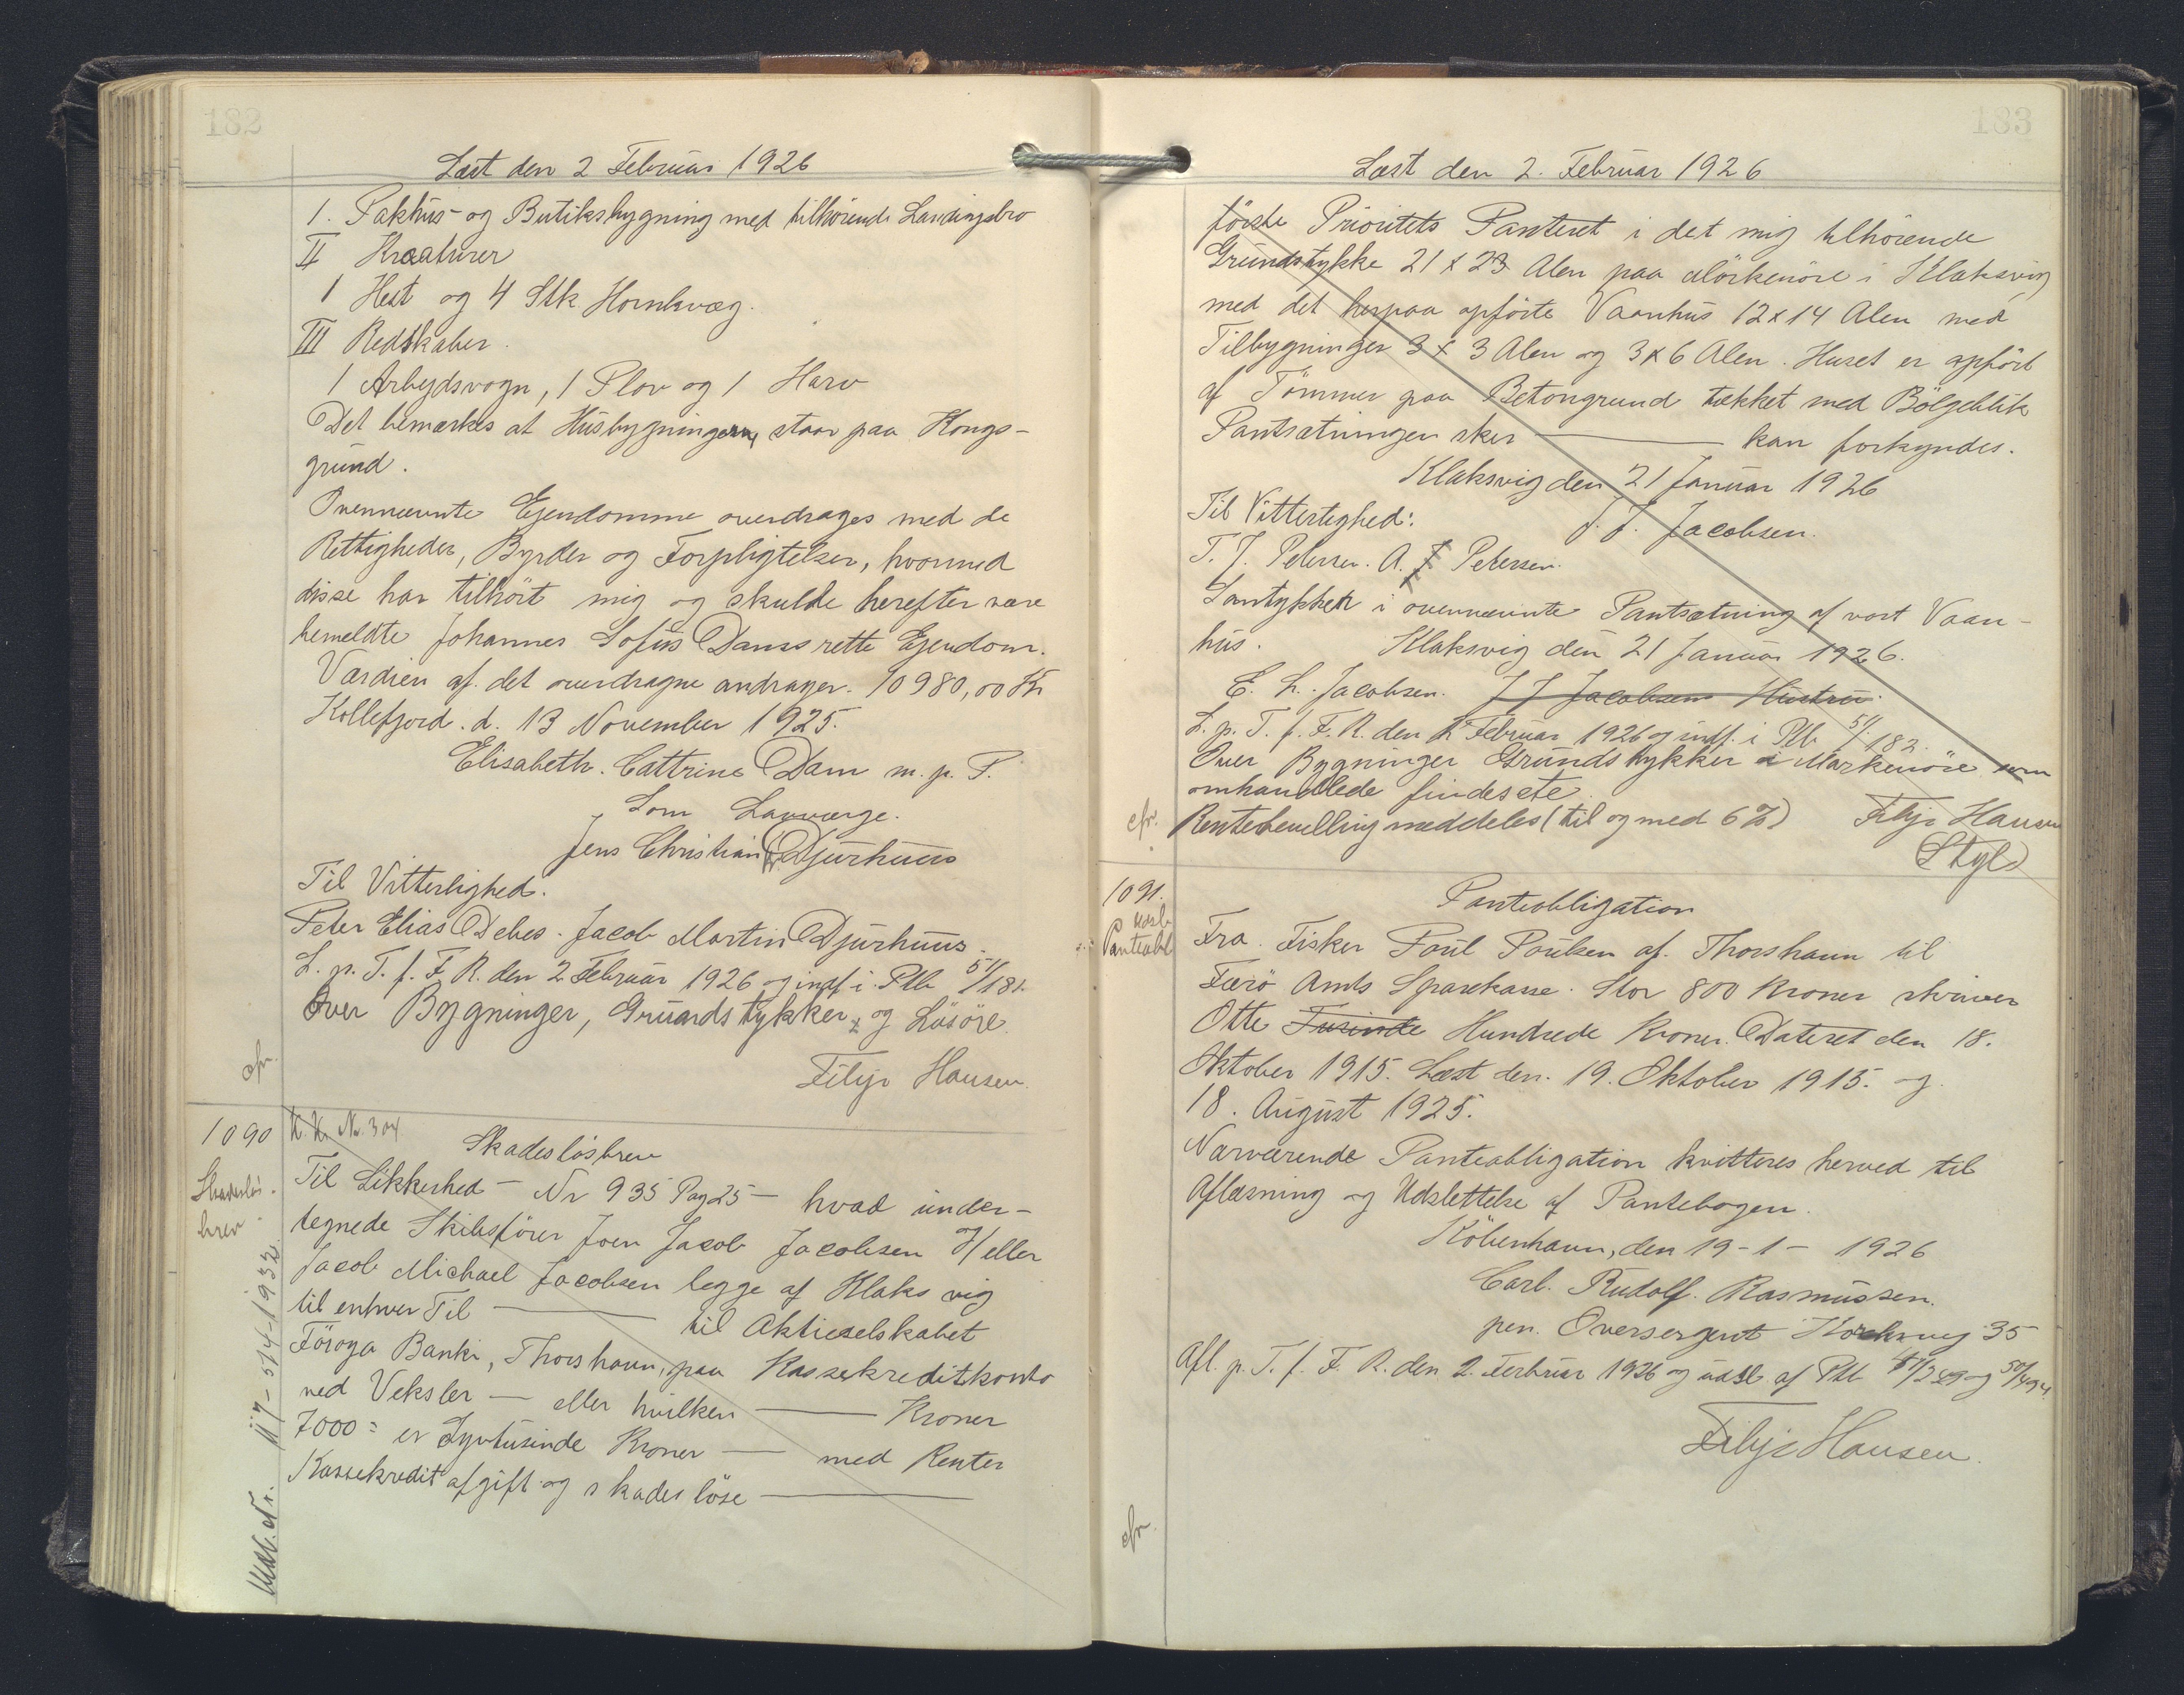 182
Læst den 2 Februar 1926
1. Pakhus- og Butiksbygning med tilhörende Landingsbro
II Kreaturer
1 Hest og 4 Stk. Hornkvæg.
III Redskaber.
1 Arbejdsvogn, 1 Plov og 1 Harv
Det bemærkes at Husbygningerne staar paa Kongs-
grund.
Ovennævnte Ejendomme overdrages med de
Rettigheder, Byrder og Forpligtelser, hvormed
disse har tilhört mig og skulde herefter være
bemeldte Johannes Sofus Dams rette Ejendom.
Værdien af det overdragne andrager. 10980,00 Kr
Kollefjord. d. 13 November 1925.
Elisabeth. Cattrine Dam m. p. P.
Som Lavværge.
Jens Christian Djurhuus
Til Vitterlighed.
Peter Elias Debes. Jacob Martin Djurhuus.
L. p. T. f. F. R. den 2 Februar 1926 og indf. i Ptb 51/181.
Over Bygninger, Grundstykker, og Lösöre.
cfr.
Filip Hansen.
1090
K. K. Nr. 304
Skadeslösbrev
Skadeslös-
brev
Til Sikkerhed - Nr 935 Pag 25 - hvad under-
tegnede Skibsförer Joen Jacob Jacobsen og/eller
Jacob Michael Jacobsen begge af Klaksvig
til enhver Til ——— til Aktieselskabet
Föroya Banki, Thorshavn, paa Kassekreditkonto
ved Veksler — eller hvilken ——— Kroner
7000 = er Syvtusinde Kroner — med Renter
Kassekredit afgift og skadeslöse ———
Udsl. d. Nr. 117-514-1932.
183
Læst den 2. Februar 1926
förste Prioritets Panteret i det mig tilhörende
Grundstykke 21 x 23 Alen paa Mörkenöre i Klaksvig
med det herpaa opförte Vaanhus 12 x 14 Alen med
Tilbygninger 3 x 3 Alen og 3 x 6 Alen. Huset er opfört
af Tömmer paa Betongrund tækket med Bölgeblik
Pantsætningen sker ——— kan forkyndes.
Klaksvig den 21 Januar 1926
Til Vitterlighed: J. J. Jacobsen.
T. J. Petersen. A. F Petersen.
Samtykker i ovennævnte Pantsætning af vort Vaan-
hus. Klaksvig den 21 Januar 1926.
E. L. Jacobsen. J J Jacobsens Hustru.
L. p. T. f. F. R. den 2 Februar 1926 og indf. i Ptb 51/182.
Over Bygninger Grundstykker i Markenöre som
omhandlede findes ete.
cfr. Rentebevilling meddeles (til og med 6 %) Filip Hansen
(Stpl)
1091.
Udsl.
Panteobl
Panteobligation
Fra Fisker Poul Poulsen af. Thorshavn til
Færö Amts Sparekasse. Stor 800 Kroner skriver
Otte Tusinde Hundrede Kroner. Dateret den 18.
Oktober 1915. Læst den. 19. Oktober 1915. og
18. August 1925.
Nærværende Panteobligation kvitteres herved til
Aflæsning og Udslettelse af Pantebogen.
Köbenhavn, den 19-1- 1926
Carl. Rudolf. Rasmussen.
pen. Oversergent 35
Afl. p. T. f. F. R. den 2. Ferbruar 1926 og udsl. af Ptb
Filip Hansen.
cfr.